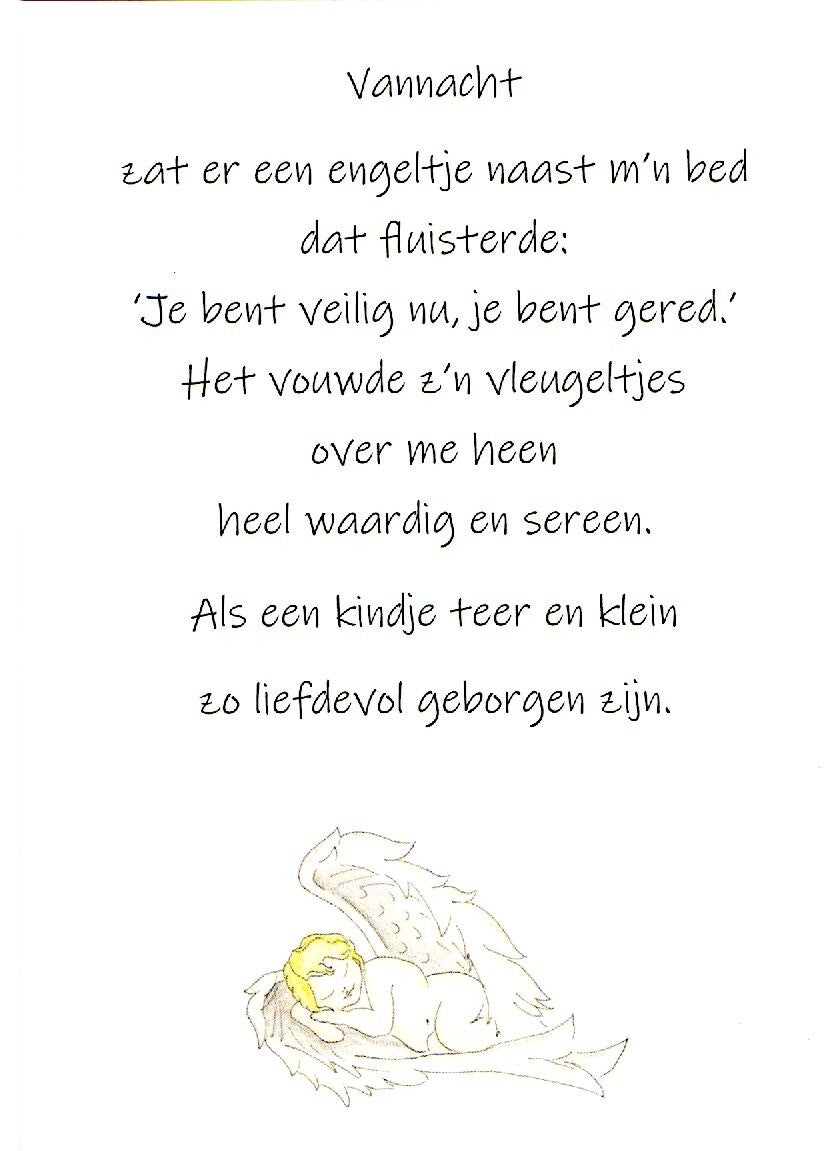 Vannacht
zat er een engeltje naast m'n bed
dat fluisterde:
'Je bent veilig nu, je bent gered.'
Het vouwde z'n vleugeltjes
over me heen
heel waardig en sereen.
Als een kindje teer en klein
zo liefdevol geborgen zijn.